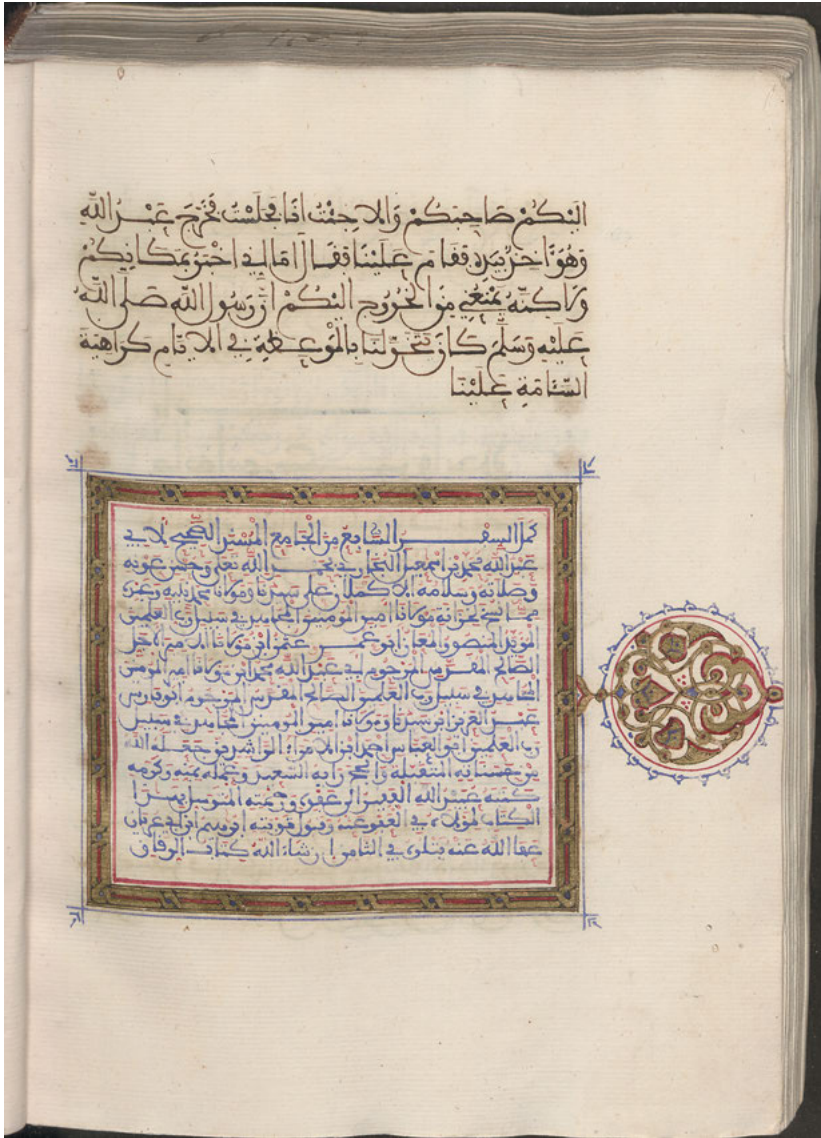 اليكم صاحبكم والا جئت انا فجلست فخرج عبد الله
وهو آخذ بيده فقام علينا فقال اما اني اخبر بمكانكم
ولاكنه يمنعني من الخروج اليكم ان رسول الله صلى الله
عليه وسلم كان يتخولنا بالموعظة في الايام كراهية
السآمة علينا
كمل السفر السابع من الجامع المسند الصحيح لابي
عبد الله محمد بن اسمعيل البخاري بحمد الله تعلى وحسن عونه
وصلاته وسلامه الاكملان على سيدنا ومولانا محمد نبيه وعبده
مما نسخ لخزانة مولانا امير المومنين المجاهد في سبيل رب العلمين
المؤيد المنصور المعان ابو عمرو عثمن ابن مولانا الامير الاجل
الصالح المقدس المرحوم ابي عبد الله محمد ابن مولانا امير المومنين
المجاهد في سبيل رب العلمين الصالح المقدس المرحوم ابو فارس
عبد العزيز ابن سيدنا ومولانا امير المومنين المجاهد في سبيل
رب العلمين ابو العباس احمد ابن الامراء الراشدين جعله الله
من حسناته المتقبلة وانجح رايه السعيد وعمله بمنه وكرمه
كتبه عبد الله الفقير الى عفوه ورحمته المتوسل بهذا
الكتاب لمولاه في العفو عنه وقبول توبته
عفا الله عنه يتلوه في الثامن ان شاء الله كتاب الرقاق